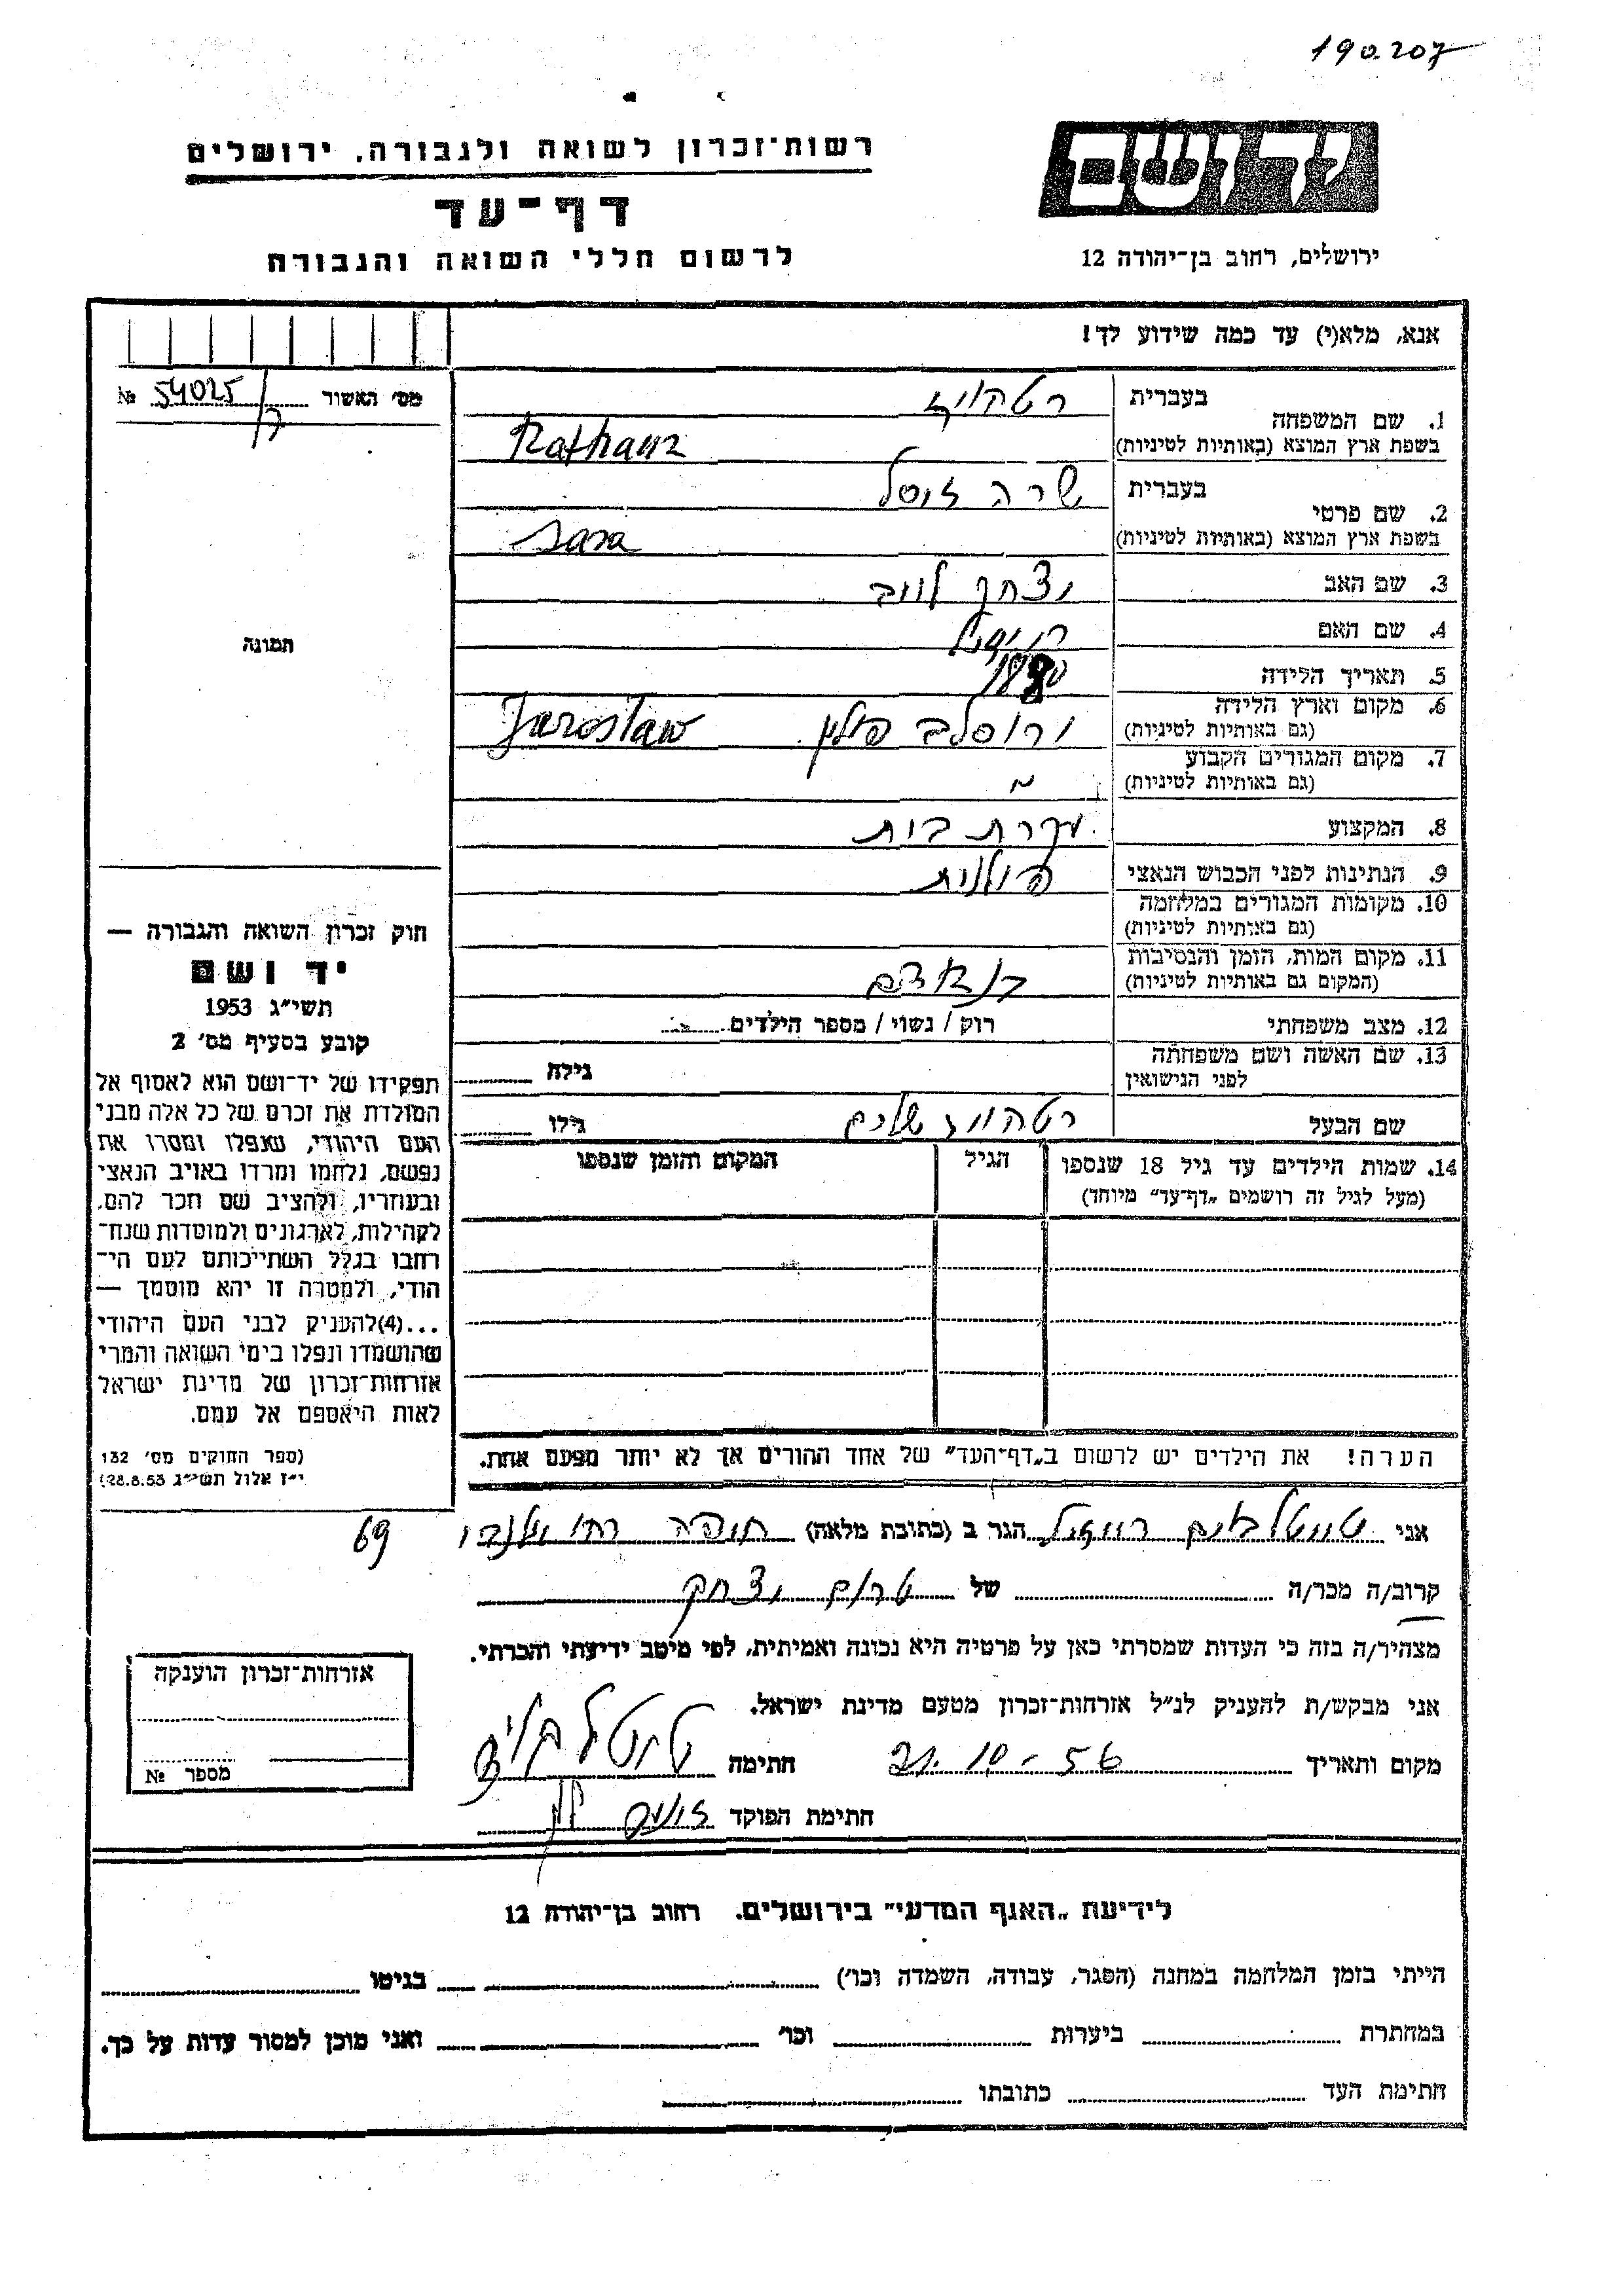 190.207
יד ושם
רשות־זכרון לשואה ולגבורה, ירושלים
דף־עד
לרשום חללי השואה והגבורה
ירושלים, רחוב בן־יהודה 12
אנא, מלא(י) עד כמה שידוע לך!
מס׳ האשור 54025 №
1. שם המשפחה
בעברית
בשפת ארץ המוצא (באותיות לטיניות)
2. שם פרטי
בעברית שרה זיסל
בשפת ארץ המוצא (באותיות לטיניות) Sara
3. שם האב יצחק
4. שם האם
5. תאריך הלידה
6. מקום וארץ הלידה
(גם באותיות לטיניות) ירוסלב פולין Jarosław
7. מקום המגורים הקבוע
(גם באותיות לטיניות)
8. המקצוע עקרת בית
9. הנתינות לפני הכבוש הנאצי פולנית
10. מקומות המגורים במלחמה
(גם באותיות לטיניות)
11. מקום המות, הזמן והנסיבות
(המקום גם באותיות לטיניות)
12. מצב משפחתי רוק / נשוי / מספר הילדים
13. שם האשה ושם משפחתה
לפני הנישואין גילה
שם הבעל גילו
14. שמות הילדים עד גיל 18 שנספו
(מעל לגיל זה רושמים „דף־עד” מיוחד)
הגיל
המקום והזמן שנספו
הערה! את הילדים יש לרשום ב„דף־העד” של אחד ההורים אך לא יותר מפעם אחת.
תמונה
חוק זכרון השואה והגבורה —
יד ושם
תשי״ג 1953
קובע בסעיף מס׳ 2
תפקידו של יד־ושם הוא לאסוף אל
המולדת את זכרם של כל אלה מבני
העם היהודי, שנפלו ומסרו את
נפשם, נלחמו ומרדו באויב הנאצי
ובעוזריו, ולהציב שם וזכר להם,
לקהילות, לארגונים ולמוסדות שנח־
רבו בגלל השתייכותם לעם הי־
הודי, ולמטרה זו יהא מוסמך —
...(4)להעניק לבני העם היהודי
שהושמדו ונפלו בימי השואה והמרי
אזרחות־זכרון של מדינת ישראל
לאות היאספם אל עמם.
(ספר החוקים מס׳ 132
י״ז אלול תשי״ג 28.8.53)
אני הגר ב (כתובת מלאה) חיפה 69
קרוב/ה מכר/ה של יצחק
מצהיר/ה בזה כי העדות שמסרתי כאן על פרטיה היא נכונה ואמיתית, לפי מיטב ידיעתי והכרתי.
אני מבקש/ת להעניק לנ״ל אזרחות־זכרון מטעם מדינת ישראל.
מקום ותאריך 21.10-56 חתימה
חתימת הפוקד
אזרחות־זכרון הוענקה
מספר №
לידיעת „האגף המדעי” בירושלים, רחוב בן־יהודה 12
הייתי בזמן המלחמה במחנה (הסגר, עבודה, השמדה וכו׳) בגיטו
במחתרת ביערות וכו׳ ואני מוכן למסור עדות על כך.
חתימת העד כתובתו